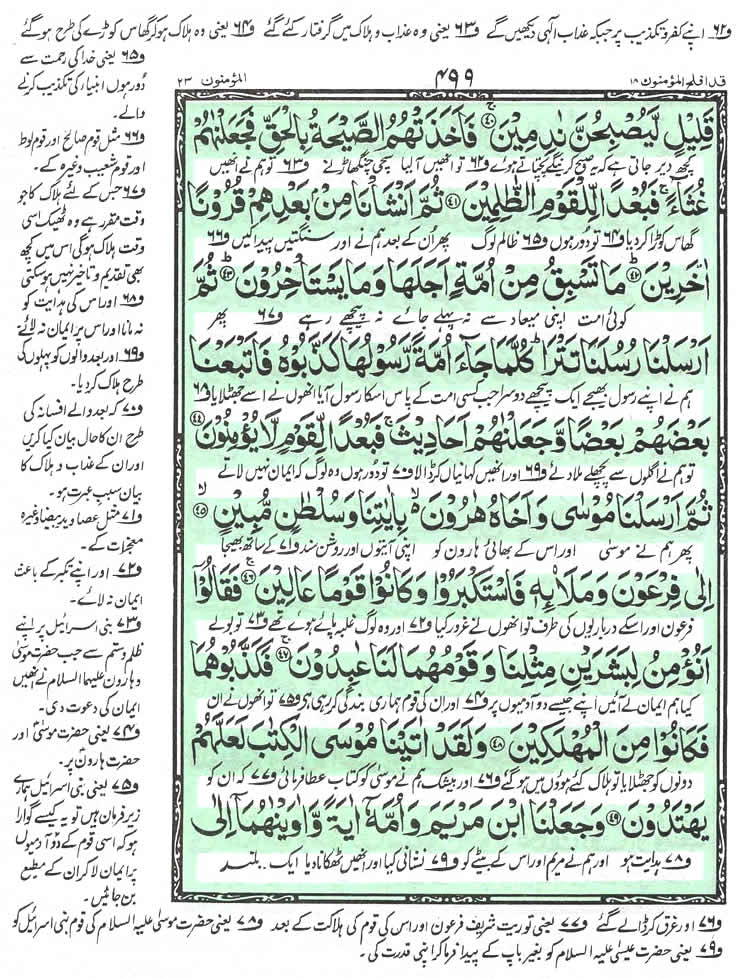 و۶۲ اپنے کفر و تکذیب پر جبکہ عذاب الٰہی دیکھیں گے و۶۳ یعنی وہ عذاب و ہلاک میں گرفتار کئے گئے و۶۴ یعنی وہ ہلاک ہو کر گھاس کوڑے کی طرح ہو گئے
و۶۵ یعنی خدا کی رحمت سے
دور ہوں انبیاء کی تکذیب کرنے
والے۔
و۶۶ مثل قوم صالح اور قوم لوط
اور قوم شعیب وغیرہ کے۔
و۶۷ جس کے لئے ہلاک کا جو
وقت مقرر ہے وہ ٹھیک اسی
وقت ہلاک ہوگی اس میں کچھ
بھی تقدیم و تاخیر نہیں ہوسکتی
و۶۸ اور اس کی ہدایت کو
نہ مانا اور اس پر ایمان نہ لائے
و۶۹ اور بعد والوں کو پہلوں کی
طرح ہلاک کردیا۔
و۷۰ کہ بعد والے افسانہ کی
طرح ان کا حال بیان کیا کریں
اور ان کے عذاب و ہلاک کا
بیان سبب عبرت ہو۔
و۷۱ مثل عصا و ید بیضا وغیرہ
معجزات کے۔
و۷۲ اور اپنے تکبر کے باعث
ایمان نہ لائے۔
و۷۳ بنی اسرائیل پر اپنے
ظلم و ستم سے جب حضرت موسیٰ
و ہارون علیہما السلام نے انھیں
ایمان کی دعوت دی۔
و۷۴ یعنی حضرت موسیٰ اور
حضرت ہارون پر۔
و۷۵ یعنی بنی اسرائیل ہمارے
زیر فرمان ہیں تو یہ کیسے گوارا
ہو کہ اسی قوم کے دو آدمیوں
پر ایمان لا کر ان کے مطیع
بن جائیں۔
قد افلح ۱۸ المؤمنون
۴۹۹
المؤمنون ۲۳
قَلِیْلٍ لَّیُصْبِحُنَّ نٰدِمِیْنَ ﴿۴۰﴾ فَاَخَذَتْهُمُ الصَّیْحَةُ بِالْحَقِّ فَجَعَلْنٰهُمْ
کچھ دیر جاتی ہے کہ یہ صبح کرینگے پچتاتے ہوئے و۶۲ تو انھیں آلیا سچی چنگھاڑ نے و۶۳ تو ہم نے انھیں
غُثَآءً ۚ فَبُعْدًا لِّلْقَوْمِ الظّٰلِمِیْنَ ﴿۴۱﴾ ثُمَّ اَنْشَاْنَا مِنْۢ بَعْدِهِمْ قُرُوْنًا
گھاس کوڑا کردیا و۶۴ تو دور ہوں و۶۵ ظالم لوگ پھر اُن کے بعد ہم نے اور سنگتیں پیدا کیں و۶۶
اٰخَرِیْنَ ﴿۴۲﴾ مَا تَسْبِقُ مِنْ اُمَّةٍ اَجَلَهَا وَمَا یَسْتَاْخِرُوْنَ ﴿۴۳﴾ ثُمَّ
کوئی امت اپنی میعاد سے نہ پہلے جائے نہ پیچھے رہے و۶۷ پھر
اَرْسَلْنَا رُسُلَنَا تَتْرَا ؕ كُلَّمَا جَآءَ اُمَّةً رَّسُوْلُهَا كَذَّبُوْهُ فَاَتْبَعْنَا
ہم نے اپنے رسول بھیجے ایک پیچھے دوسرا جب کسی امت کے پاس اسکا رسول آیا انھوں نے اسے جھٹلایا و۶۸
بَعْضَهُمْ بَعْضًا وَّجَعَلْنٰهُمْ اَحَادِیْثَ ۚ فَبُعْدًا لِّقَوْمٍ لَّا یُؤْمِنُوْنَ ﴿۴۴﴾
تو ہم نے اگلوں سے پچھلے ملا دئے و۶۹ اور انھیں کہانیاں کر ڈالا و۷۰ تو دور ہوں وہ لوگ کہ ایمان نہیں لاتے
ثُمَّ اَرْسَلْنَا مُوْسٰى وَاَخَاهُ هٰرُوْنَ ۬ بِاٰیٰتِنَا وَسُلْطٰنٍ مُّبِیْنٍ ﴿۴۵﴾
پھر ہم نے موسیٰ اور اس کے بھائی ہارون کو اپنی آیتوں اور روشن سند و۷۱ کے ساتھ بھیجا
اِلٰى فِرْعَوْنَ وَمَلَا۟ئِهٖ فَاسْتَكْبَرُوْا وَكَانُوْا قَوْمًا عَالِیْنَ ﴿۴۶﴾ فَقَالُوْۤا
فرعون اور اسکے درباریوں کی طرف تو انھوں نے غرور کیا و۷۲ اور وہ لوگ غلبہ پائے ہوئے تھے و۷۳ تو بولے
اَنُؤْمِنُ لِبَشَرَیْنِ مِثْلِنَا وَقَوْمُهُمَا لَنَا عٰبِدُوْنَ ﴿۴۷﴾ فَكَذَّبُوْهُمَا
کیا ہم ایمان لے آئیں اپنے جیسے دو آدمیوں پر و۷۴ اور ان کی قوم ہماری بندگی کر رہی ہے و۷۵ تو انھوں نے ان
فَكَانُوْا مِنَ الْمُهْلَكِیْنَ ﴿۴۸﴾ وَلَقَدْ اٰتَیْنَا مُوْسَى الْكِتٰبَ لَعَلَّهُمْ
دونوں کو جھٹلایا تو ہلاک کئے ہوؤں میں ہو گئے و۷۶ اور بیشک ہم نے موسیٰ کو کتاب عطا فرمائی و۷۷ کہ ان کو
یَهْتَدُوْنَ ﴿۴۹﴾ وَجَعَلْنَا ابْنَ مَرْیَمَ وَاُمَّهٗۤ اٰیَةً وَّاٰوَیْنٰهُمَاۤ اِلٰى
و۷۸ ہدایت ہو اور ہم نے مریم اور اس کے بیٹے کو و۷۹ نشانی کیا اور انھیں ٹھکانا دیا ایک .. بلند
و۷۶ اور غرق کر ڈالے گئے و۷۷ یعنی توریت شریف فرعون اور اس کی قوم کی ہلاکت کے بعد و۷۸ یعنی حضرت موسیٰ علیہ السلام کی قوم بنی اسرائیل کو
و۷۹ یعنی حضرت عیسیٰ علیہ السلام کو بغیر باپ کے پیدا فرما کر اپنی قدرت کی۔